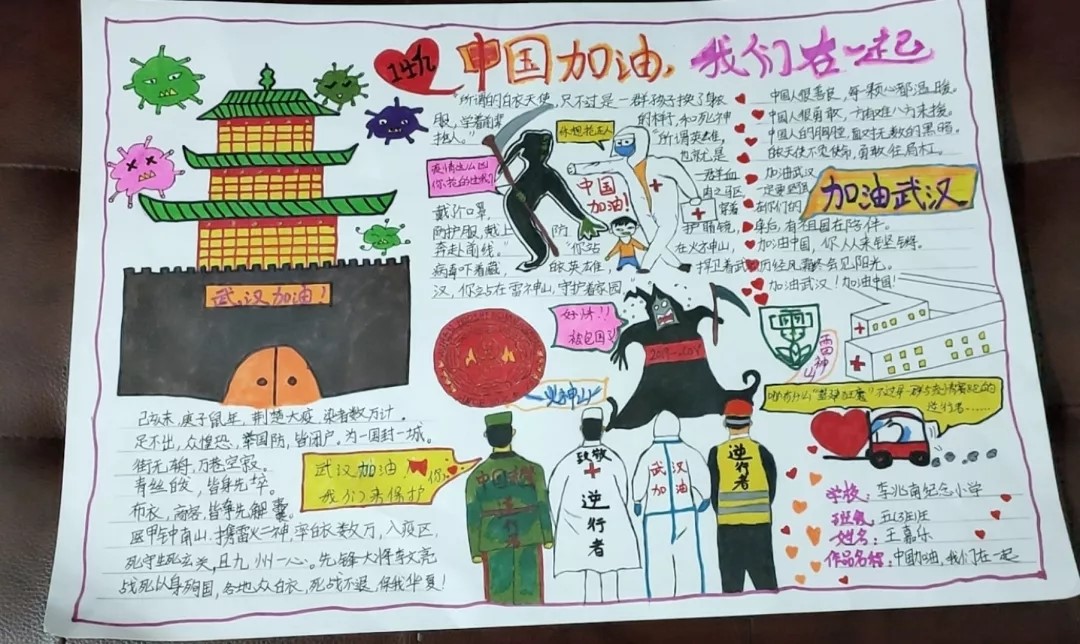 中国加油,我们在一起
"所谓的白衣天使,只不过是一群孩子换了身衣
服,学着前辈的样子,和死神
抢人。"
"所谓英雄,
也就是
你想抢走人
中国
加油!
戴上口罩,
防护服,戴上
防护眼镜,
奔赴前线。
"你站
在火神山,
病毒吓着藏,
的英雄,
捍卫着武
汉,你站在雷神山,守护着家园。"
中国人很善良,每一颗心都温暖。
中国人很勇敢,一方有难八方来援。
加油武汉
一定要坚强
在你们的
身后,有祖国在陪伴。
加油中国,
历经风霜终会见阳光。
加油武汉!加油中国!
加油武汉
武汉加油!
火神山
雷神山
己亥末,庚子鼠年,荆楚大疫,染者数万计。
足不出,众惶恐,举国防,皆闭户。为一国封一城。
街无车舟,万巷空寂。
布衣,商客,皆争先解囊
医甲钟南山,携雷火二神,率白衣数万,入疫区,
死守生死玄关,且九州一心。先锋大将李文亮
战死以身殉国,各地众白衣,死战不退,保我华夏!
武汉加油
我们来保护
你
逆行者
致敬
逆行者
武汉
加油
逆行者
学校:李兆南纪念小学
班级:五(3)班
姓名:王嘉乐
作品名称:中国加油,我们在一起